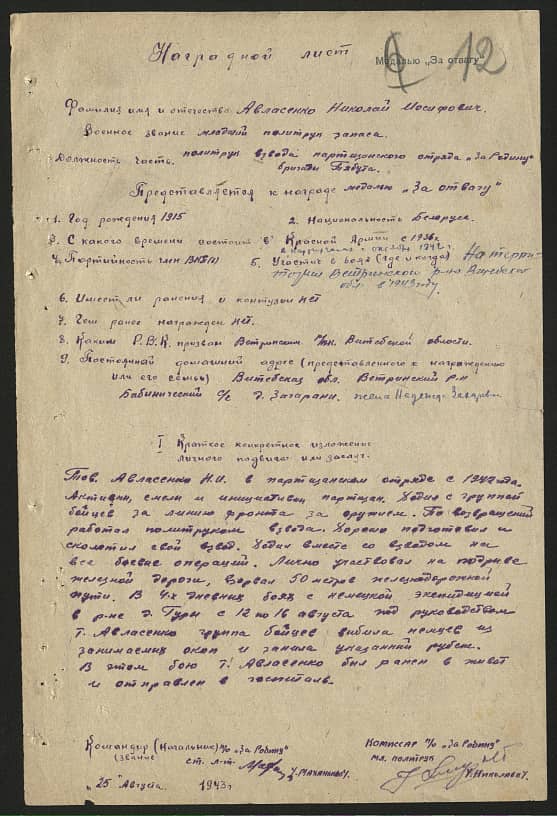 Наградной лист
Медалью „За отвагу"
12
Фамилия имя и отчество Авласенко Николай Иосифович.
Военное звание младший политрук запаса.
Должность часть. политрук взвода партизанского отряда „За Родину"
бригады
Представляется к награде медалью „За отвагу"
1. Год рождения 1915 2. Национальность Белорус.
3. С какого времени состоит в Красной Армии с 1936г.
в партизанах с октября 1942г.
4. Партийность член ВКП(б) 5. Участие в боях (где и когда) На терри-
тории Ветринского р-на Витебской
обл. в 1943 году.
6. Имеет ли ранения и контузии нет
7. Чем ранее награжден нет.
8. Каким Р.В.К. призван Ветринским Витебской области.
9. Постоянный домашний адрес (представленного к награждению
или его семьи) Витебская обл. Ветринский р-н
Бабинический с/с д. Загарани. жена Надежда
I Краткое конкретное изложение
личного подвига или заслуг.
Тов. Авласенко Н.И. в партизанском отряде с 1942 года.
Активен, смел и инициативен партизан. Ходил с группой
бойцев за линию фронта за оружием. По возвращений
работал политруком взвода. Хорошо подготовил и
сколотил свой взвод. Ходил вместе со взводом на
все боевые операций. Лично участвовал на подрыве
железной дороги, взорвал 50 метров железнодорожной
пути. В 4х дневных боях с немецкой экспедицией
в р-не д. Туры с 12 по 16 августа под руководством
т. Авласенко группа бойцев выбила немцев из
занимаемих окоп и заняла указанный рубеж.
В этом бою т. Авласенко был ранен в живот
и отправлен в госпиталь.
Командир (Начальник) п/о „За Родину" Комиссар п/о „За Родину"
(звание ст. л-т. мл. политрук
/Николаев/.
„25" Августа 1943г.